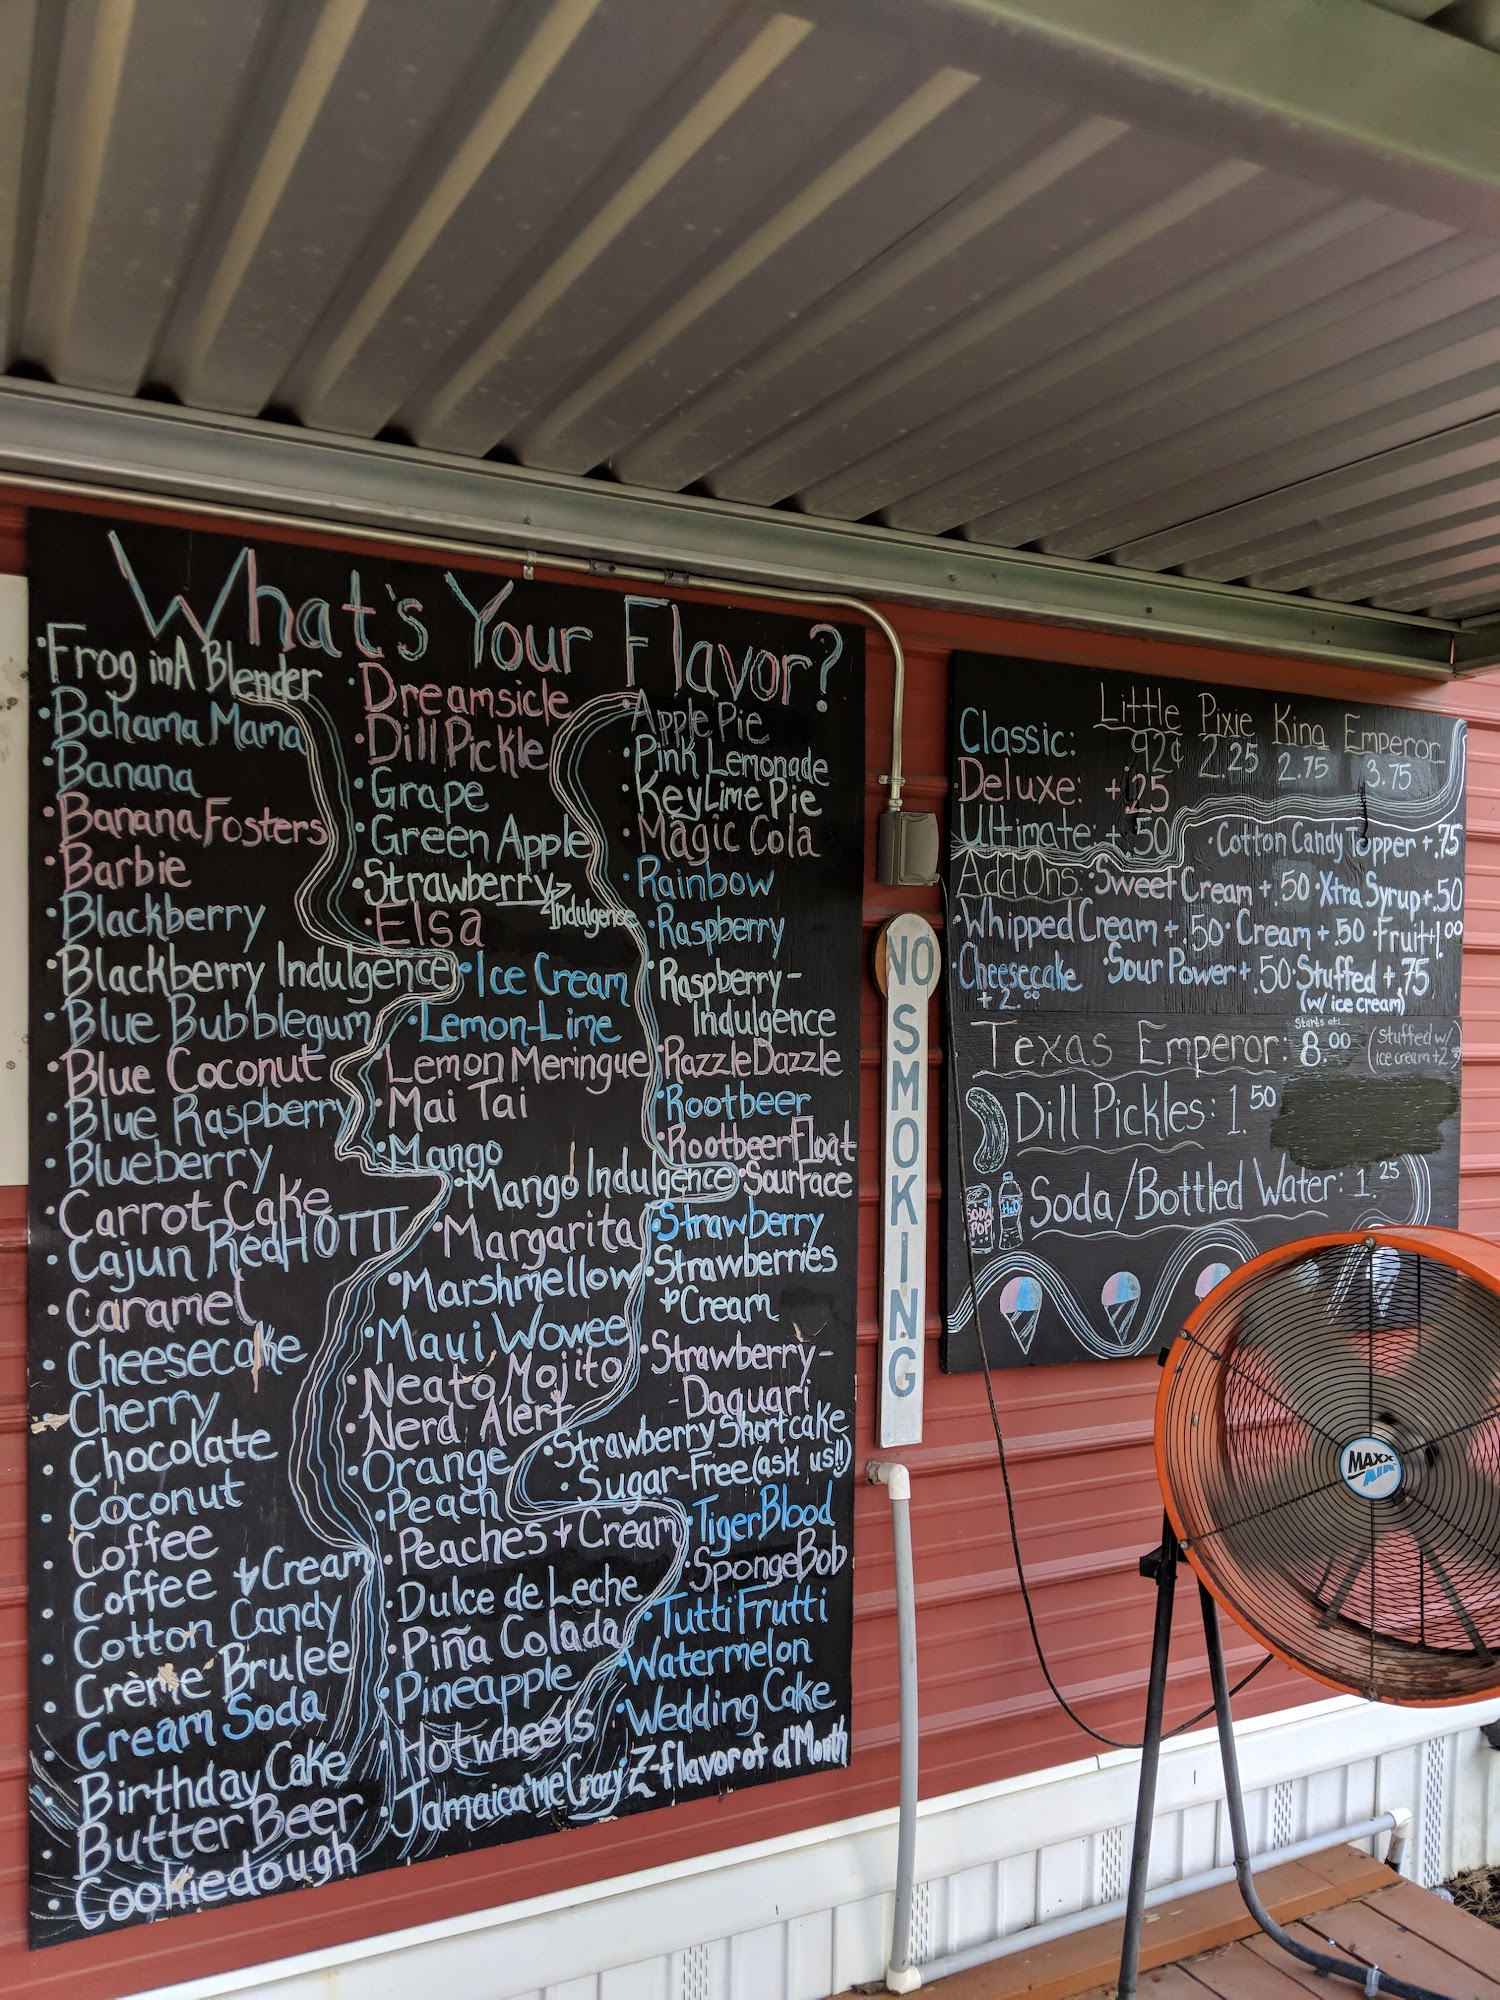 What's Your Flavor?
• Frog in A Blender
• Bahama Mama
• Banana
• Banana Fosters
• Barbie
• Blackberry
• Blackberry Indulgence
• Blue Bubblegum
• Blue Coconut
• Blue Raspberry
• Blueberry
• Carrot Cake
• Cajun RedHOTTT
• Caramel
• Cheesecake
• Cherry
• Chocolate
• Coconut
• Coffee
• Coffee & Cream
• Cotton Candy
• Crème Brulee
• Cream Soda
• Birthday Cake
• Butter Beer
• Cookiedough
• Dreamsicle
• Dill Pickle
• Grape
• Green Apple
• Strawberry
Indulgence
• Elsa
• Ice Cream
• Lemon-Lime
Lemon Meringue
• Mai Tai
• Mango
• Mango Indulgence
• Margarita
• Marshmellow
• Maui Wowee
• Neato Mojito
• Nerd Alert
• Orange
• Peach
• Peaches & Cream
• Dulce de Leche
• Piña Colada
• Pineapple
• Hotwheels
• Jamaica 'me' Crazy
• Apple Pie
• Pink Lemonade
• KeyLime Pie
• Magic Cola
• Rainbow
• Raspberry
• Raspberry-
Indulgence
• RazzleDazzle
• Rootbeer
• RootbeerFloat
• SourFace
• Strawberry
• Strawberries
& Cream
• Strawberry-
-Daquari
• Strawberry Shortcake
• Sugar-Free (ask us!!)
• TigerBlood
• SpongeBob
• Tutti Frutti
• Watermelon
• Wedding Cake
Z-flavor of d'Month
NO
SMOKING
Little Pixie King Emperor
Classic: 92¢ 2.25 2.75 3.75
Deluxe: + .25
Ultimate: + .50 • Cotton Candy Topper + .75
Add Ons: • Sweet Cream + .50 • Xtra Syrup + .50
• Whipped Cream + .50 • Cream + .50 • Fruit 1.00
• Cheesecake + 2.00 • Sour Power + .50 • Stuffed + .75
(w/ ice cream)
Texas Emperor: Starts at: 8.00 (stuffed w/
ice cream +2.
Dill Pickles: 1.50
Soda/Bottled Water: 1.25
SODA
POP
H2O
MAXX
AIR